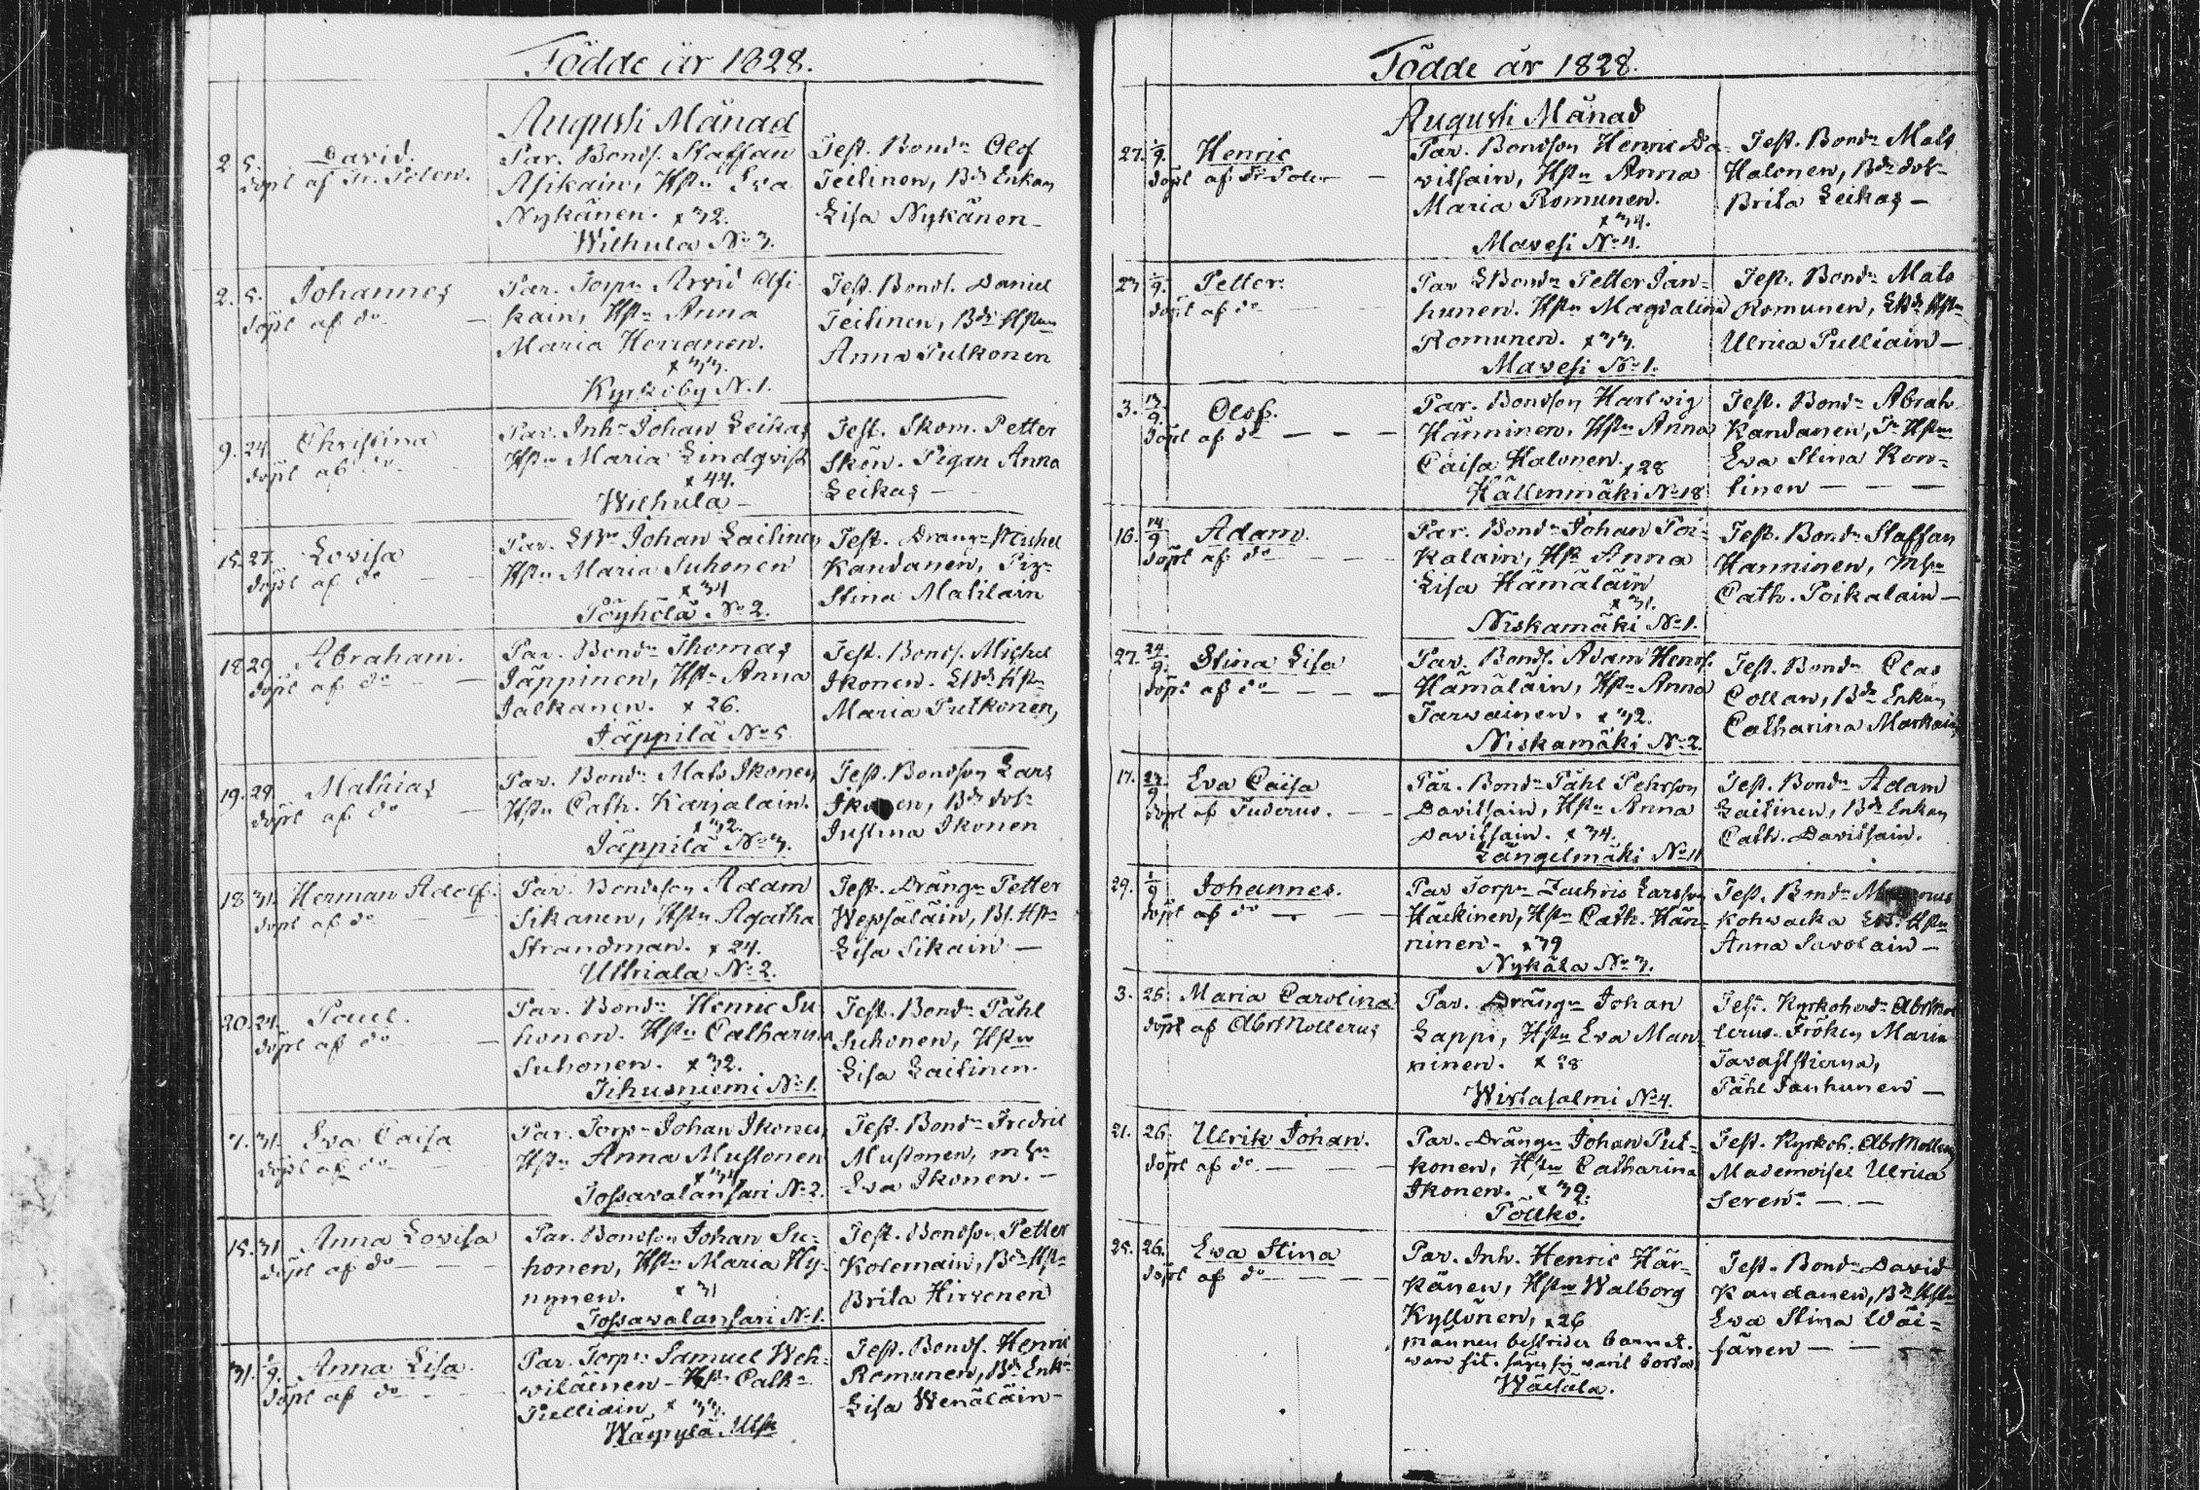 Födde år 1828.
Augusti Månad
2 5. David.
döpt af Fr. Polen.
Par. Bonds. Staffan
Asikain, Hstr Eva
Nykänen. x 32.
Wilhula No 3.
Test. Bondn Olof
Teilinen, Bds Enkan
Lisa Nykänen
2. 5. Johannes
döpt af do
Par. Torpn Arvid Asi-
kain, Hstr Anna
Maria Herranen.
x 33.
Kyrkoby N. 1.
Test. Bonds. Daniel
Teilinen, Bds Hstrn
Anna Putkonen
9. 24. Christina
döpt af do
Par. Inhs Johan Leikas
Hstr Maria Lindqvist
x 44.
Wilhula
Test. Skom. Petter
Skön. Pigan Anna
Leikas
15. 27. Lovisa
döpt af do
Par. LBn Johan Laitinen
Hstr Maria Suhonen
x 34
Pöyhölä No 2.
Test. Drängn Michel
Kandanen, Pig.
Stina Matilain
18 29 Abraham.
döpt af do
Par. Bondn Thomas
Jäppinen, Hstr Anna
Jalkanen. x 26.
Jäppilä No 5
Test. Bonds. Michel
Ikonen. LBds Hstr
Maria Putkonen,
19. 29. Mathias
döpt af do
Par. Bondn Mats Ikonen
Hstr Cath. Karjalain.
x 32.
Jäppilä No 3.
Test. Bondson Lars
Ikonen, Bds dotr
Justina Ikonen
18 31. Herman Adolf.
döpt af do
Par. Bondeson Adam
Sikanen, Hstr Agatha
Strandman. x 24.
Utriala No 2.
Test. Drängn Petter
Wepsäläin, Bs. Hstr
Lisa Sikain
20. 24. Paul.
döpt af do
Par. Bondn Henric Su-
honen. Hstr Catharina
Suhonen. x 32.
Jihusniemi No 1.
Test. Bondn Påhl
Suhonen, Hstrn
Lisa Laitinen.
7. 31. Eva Caisa
döpt af do
Par. Torpn Johan Ikonen
Hstr Anna Mustonen
x 34
Tossavalansari No 2.
Test. Bondn Fredric
Mustonen, msn
Eva Ikonen.
15. 31 Anna Lovisa
döpt af do
Par. Bondson Johan Su-
honen, Hstr Maria Hy-
nynen. x 31
Tossavalansari No 1.
Test. Bondson Petter
Kolemain, Bds Hstr
Brita Hirvonen
31. 1/9. Anna Lisa.
döpt af do
Par. Torpn Samuel Weh-
viläinen Hstr Cath.
Pulliain x 33.
Wäyrylä
Test. Bonds. Henric
Romunen, Bds Enkn
Lisa Wenäläin
Födde år 1828.
Augusti Månad
27. 1/9. Henric
döpt af Fr Polen
Par. Bondson Henric Da-
vitsain, Hstr Anna
Maria Romunen.
x 34.
Mavesi No 4.
Test. Bondn Mats
Halonen, Bds dotr
Brita Leikas
27 1/9. Petter.
döpt af do
Par LBondn Petter Jan-
hunen. Hstr Magdalena
Romunen. x 33.
Mavesi No 1.
Test. Bondn Mats
Romunen, LBds Hstrn
Ulrica Pulliain
3. 13/9. Olof.
döpt af do
Par. Bondson Hartvig
Hänninen, Hstr Anna
Caisa Halonen. x 28
Hällinmäki No 18
Test. Bondn Abrah.
Kandanen, Tr Hstrn
Eva Stina Kon-
tinen
16. 14/9 Adam.
döpt af do
Par. Bondn Johan Poi-
kalain, Hstr Anna
Lisa Hämäläin
x 31.
Niskamäki No 1.
Test. Bondn Staffan
Hänninen, msn
Cath. Poikalain
27. 24/9. Stina Lisa
döpt af do
Par. Bonds. Adam Henrs.
Hämäläin, Hstr Anna
Tarvainen. x 32.
Niskamäki No 2.
Test. Bondn Clas
Collan, Bds Enkan
Catharina Markain
17. 27/9 Eva Caisa
döpt af Tuderus.
Par. Bondn Påhl Pehrson
Davitsain, Hstr Anna
Davitsain. x 34.
Längelmäki No 11
Test. Bondn Adam
Laitinen, Bds Enkan
Cath. Davitsain.
29. 1/9 Johannes.
döpt af do
Par Torpn Zachris Larsson
Häkkinen, Hstr Cath. Hän-
ninen. x 39
Nykälä No 3.
Test. Bondn Magnus
Kohvacka LBs. Hstrn
Anna Savolain
3. 25. Maria Carolina
döpt af AbrMollerus
Par. Drängn Johan
Lappi, Hstr Eva Man-
ninen. x 28
Wirtasalmi No 4.
Test. Kyrkoherdn AbrMol-
lerus. Fröken Maria
Tavaststierna,
Påhl Janhunen
21. 26. Ulrik Johan.
döpt af do
Par. Drängn Johan Put-
konen, Hstr Catharina
Ikonen. x 32.
Pölkö.
Test. Kyrkoh. AbrMollerus
Mademoisel Ulrica
Seren.
25. 26. Eva Stina
döpt af do
Par. Inh. Henric Här-
känen, Hstr Walborg
Kyllönen, x 26
mannen bestrider barnet
vara sit. säger sig varit borta
Wäisälä.
Test. Bondn David
Kandanen, Bds Hstrn
Eva Stina Wäi-
sänen